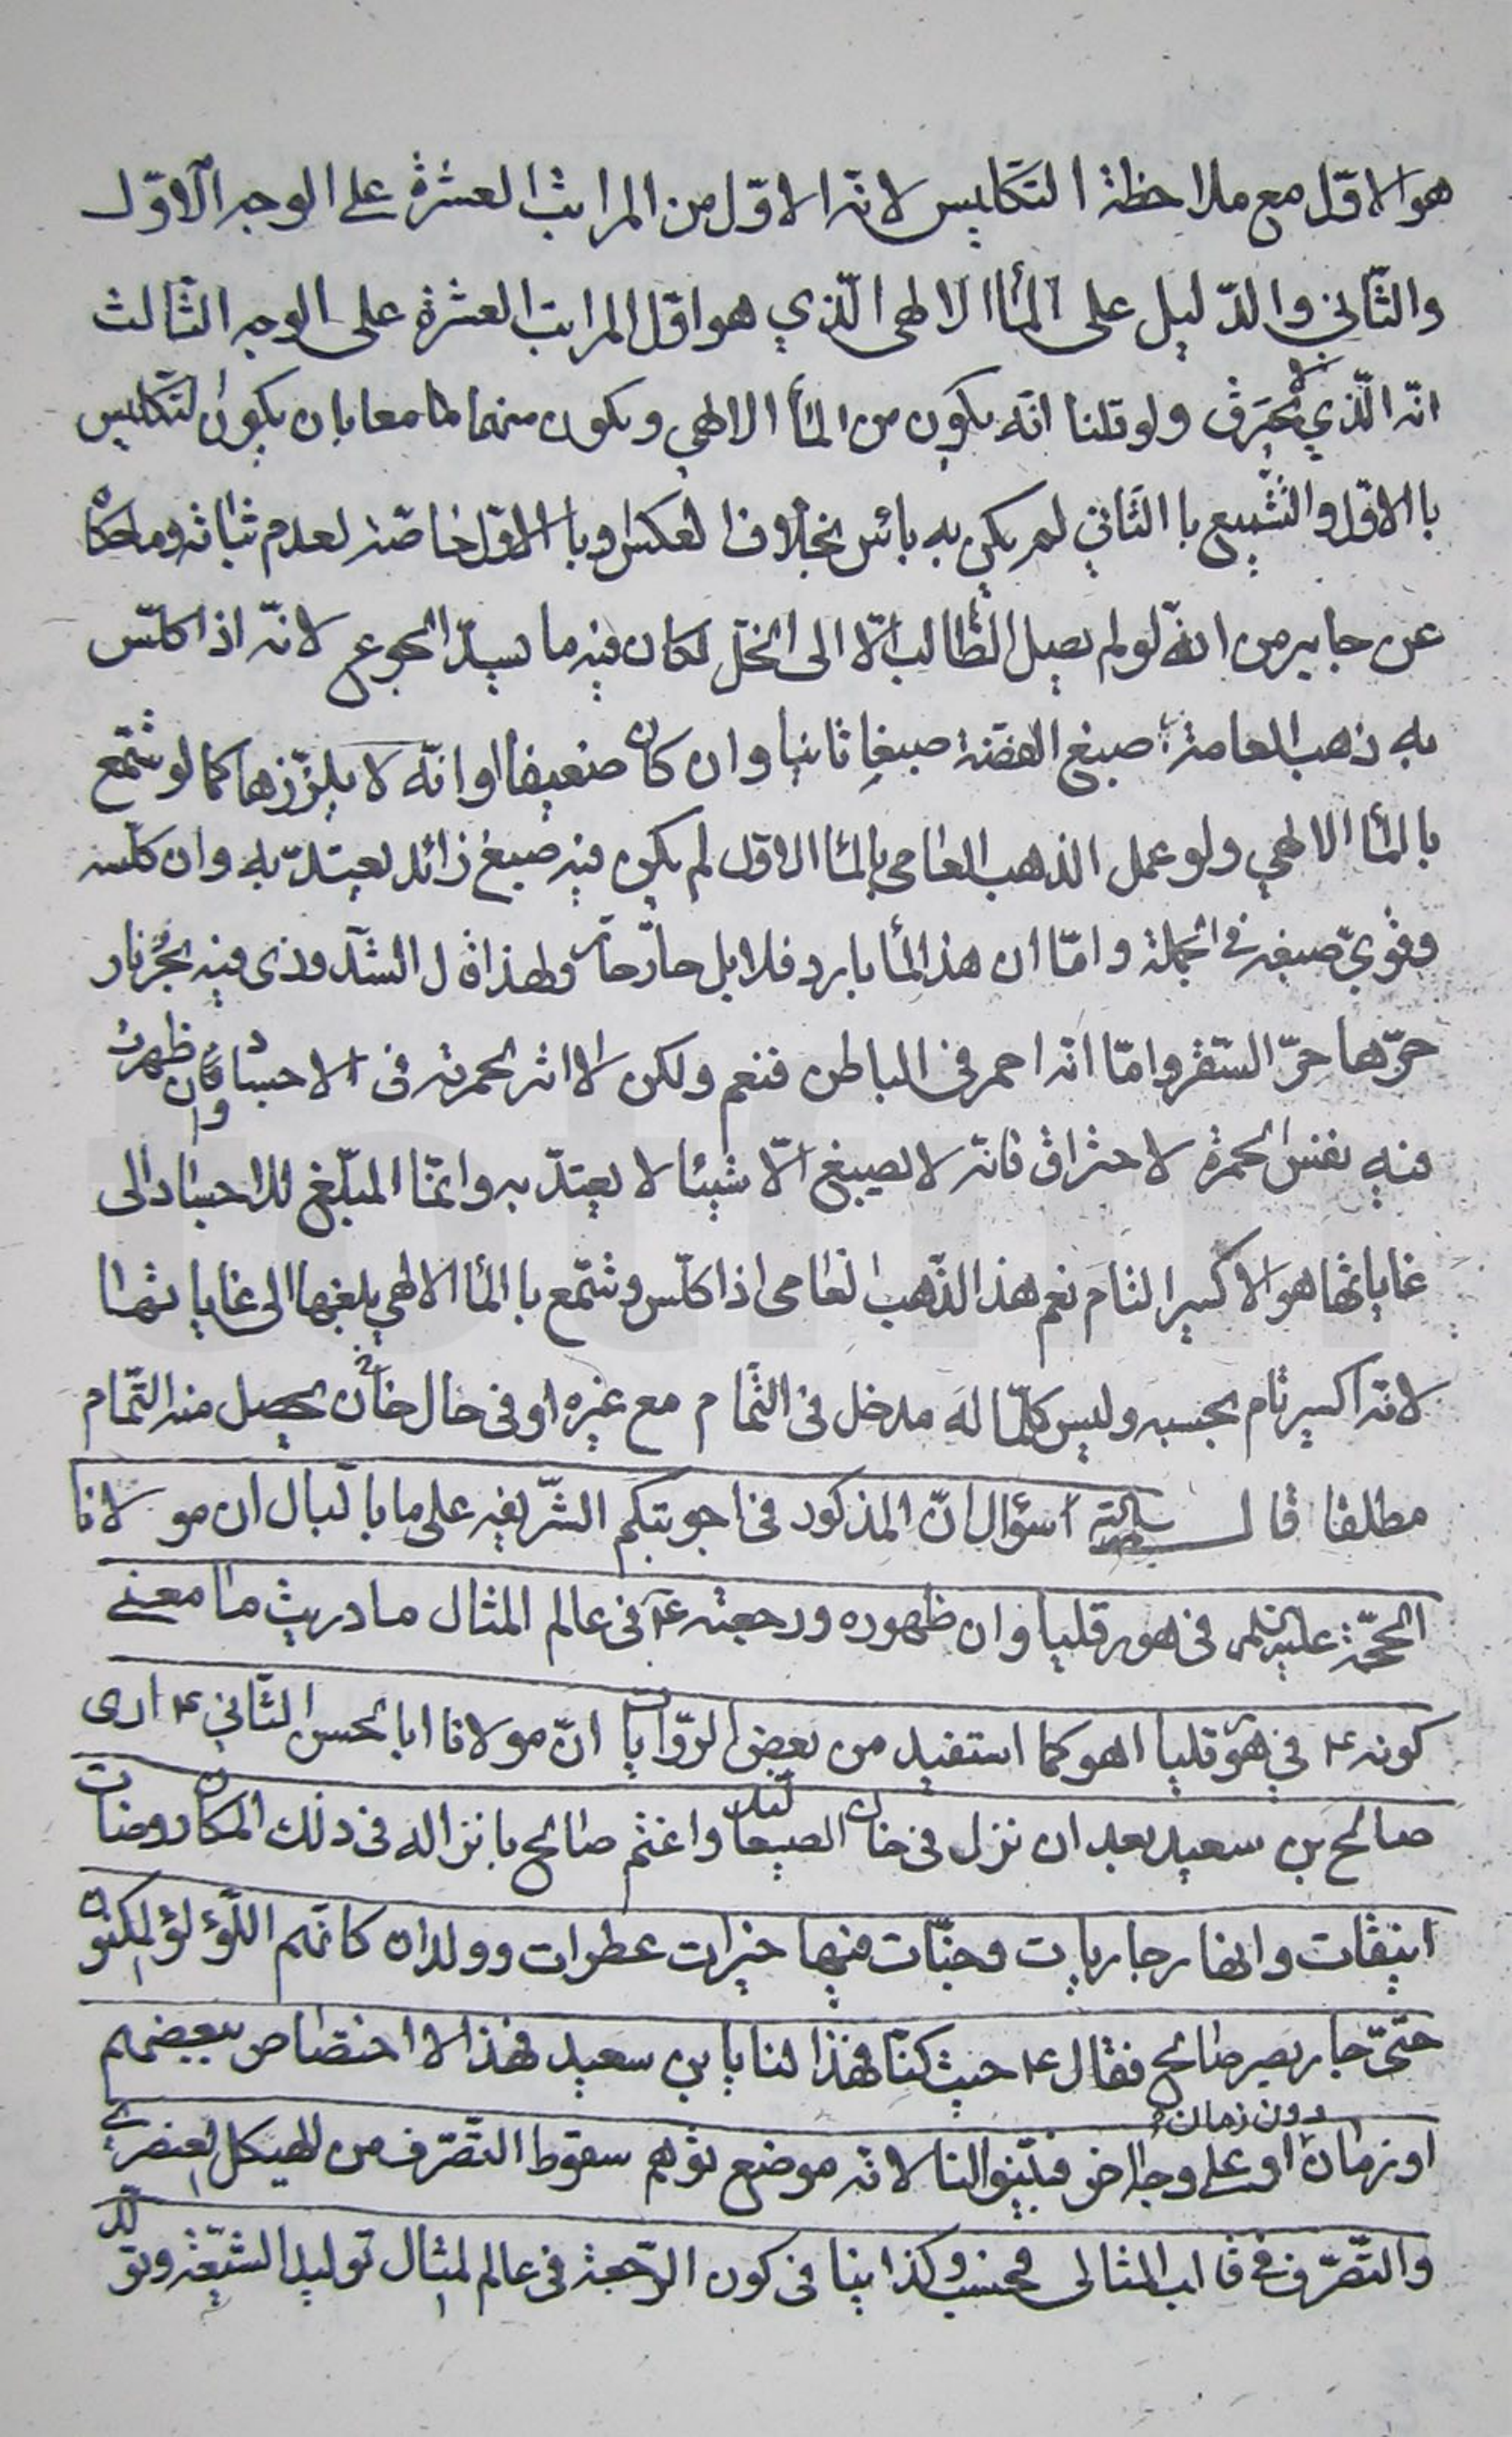 هو الاوّل مع ملاحظة التكليس لانّه الاوّل من المراتب العشرة على الوجه الاوّل
والثّاني والدّليل على المأ الالهى الّذي هو اوّل المراتب العشرة على الوجه الثّالث
انّه الّذي لا يُحرق ولو قلنا انّه يكون من المأ الالهي ويكون منهما معا بان يكون التكليس
با الاوّل والتّشميع با الثّاني لم يكن به بائس بخلاف العكس وبا الاوّل خاصّة لعدم ثباته وما حكاه
عن جابر من انّه لو لم يصل الطّالب الّا الى الخلّ لكان فيه ما يسدّ الجوع لانّه اذا كلّس
به ذهب العامة صبغ الفضّة صبغا ثانيا وان كان ضعيفا وانّه لا يلزّزها كما لو شمّع
بالمأ الالهي ولو عمل الذهب العامى بالمأ الاوّل لم يكن فيه صبغ زائد يعتدّ به وان كلّسه
وقويّ صبغه في الجملة وامّا ان هذ المأ بارد فلا بل حارّ حارّ ولهذا قال الشذوذى فيه بحُر نار
حرّها حرّ السقر وامّا انّه احمر فى الباطن فنعم ولكن لا اثر لحمرته فى الاجساد وان ظهرت
فيه نفس الحمرة لاحتراق فانّه لا يصبغ الّا شيئا لا يعتدّ به وانّما المبلّغ للاجساد الى
غاياتها هو الاكسير التام نعم هذ الذّهب العامى اذا كلّس وشمّع با المأ الالهي يبلغها الى غاياتها
لانّه اكسير تام بحسبه وليس كلّما له مدخل فى التّمام مع غيره او فى حال خاصّ يحصل منه التّمام
مطلقا قال اسؤال انّ المذكور فى اجوبتكم الشّريفه على ما با لبال ان مولانا
الحجّة عليه السلم فى هورقليا وان ظهوره ورجعته ع فى عالم المثال ما دريت ما معنى
كونه ع في هورقليا اهو كما استفيد من بعض الرّوايات انّ مولانا ابا الحسن الثّاني ع ارى
صالح بن سعيد بعد ان نزل فى خان الصعاليك واغتم صالح بانزاله فى ذلك المكان روضات
انيقات وانهار جاريات وجنّات فيها خيرات عطرات وولدان كانّهم اللّؤلؤ المكنون
حتىّ حار بصر صالح فقال ع حيث كنّا فهذا لنا يا بن سعيد فهذا لا اختصاص ببعضهم
او زمان دون زمان او على وجه اخر فبيّنوا لنا لانّه موضع توهم سقوط التّصرّف من الهيكل العنصرى
والتّصرّف فى قالب المثالى فحسب وكذا بينا فى كون الرّجعة فى عالم المثال توليد الشيعة وتولّد